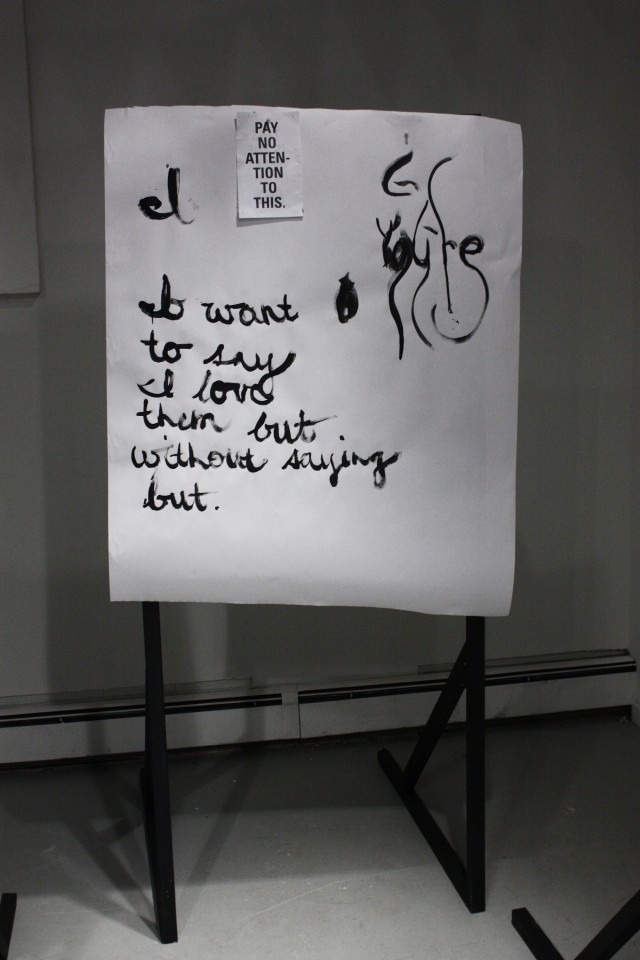 PAY
NO
ATTEN-
TION
TO
THIS.
I
I want
to say
I love
them but
without saying
but.